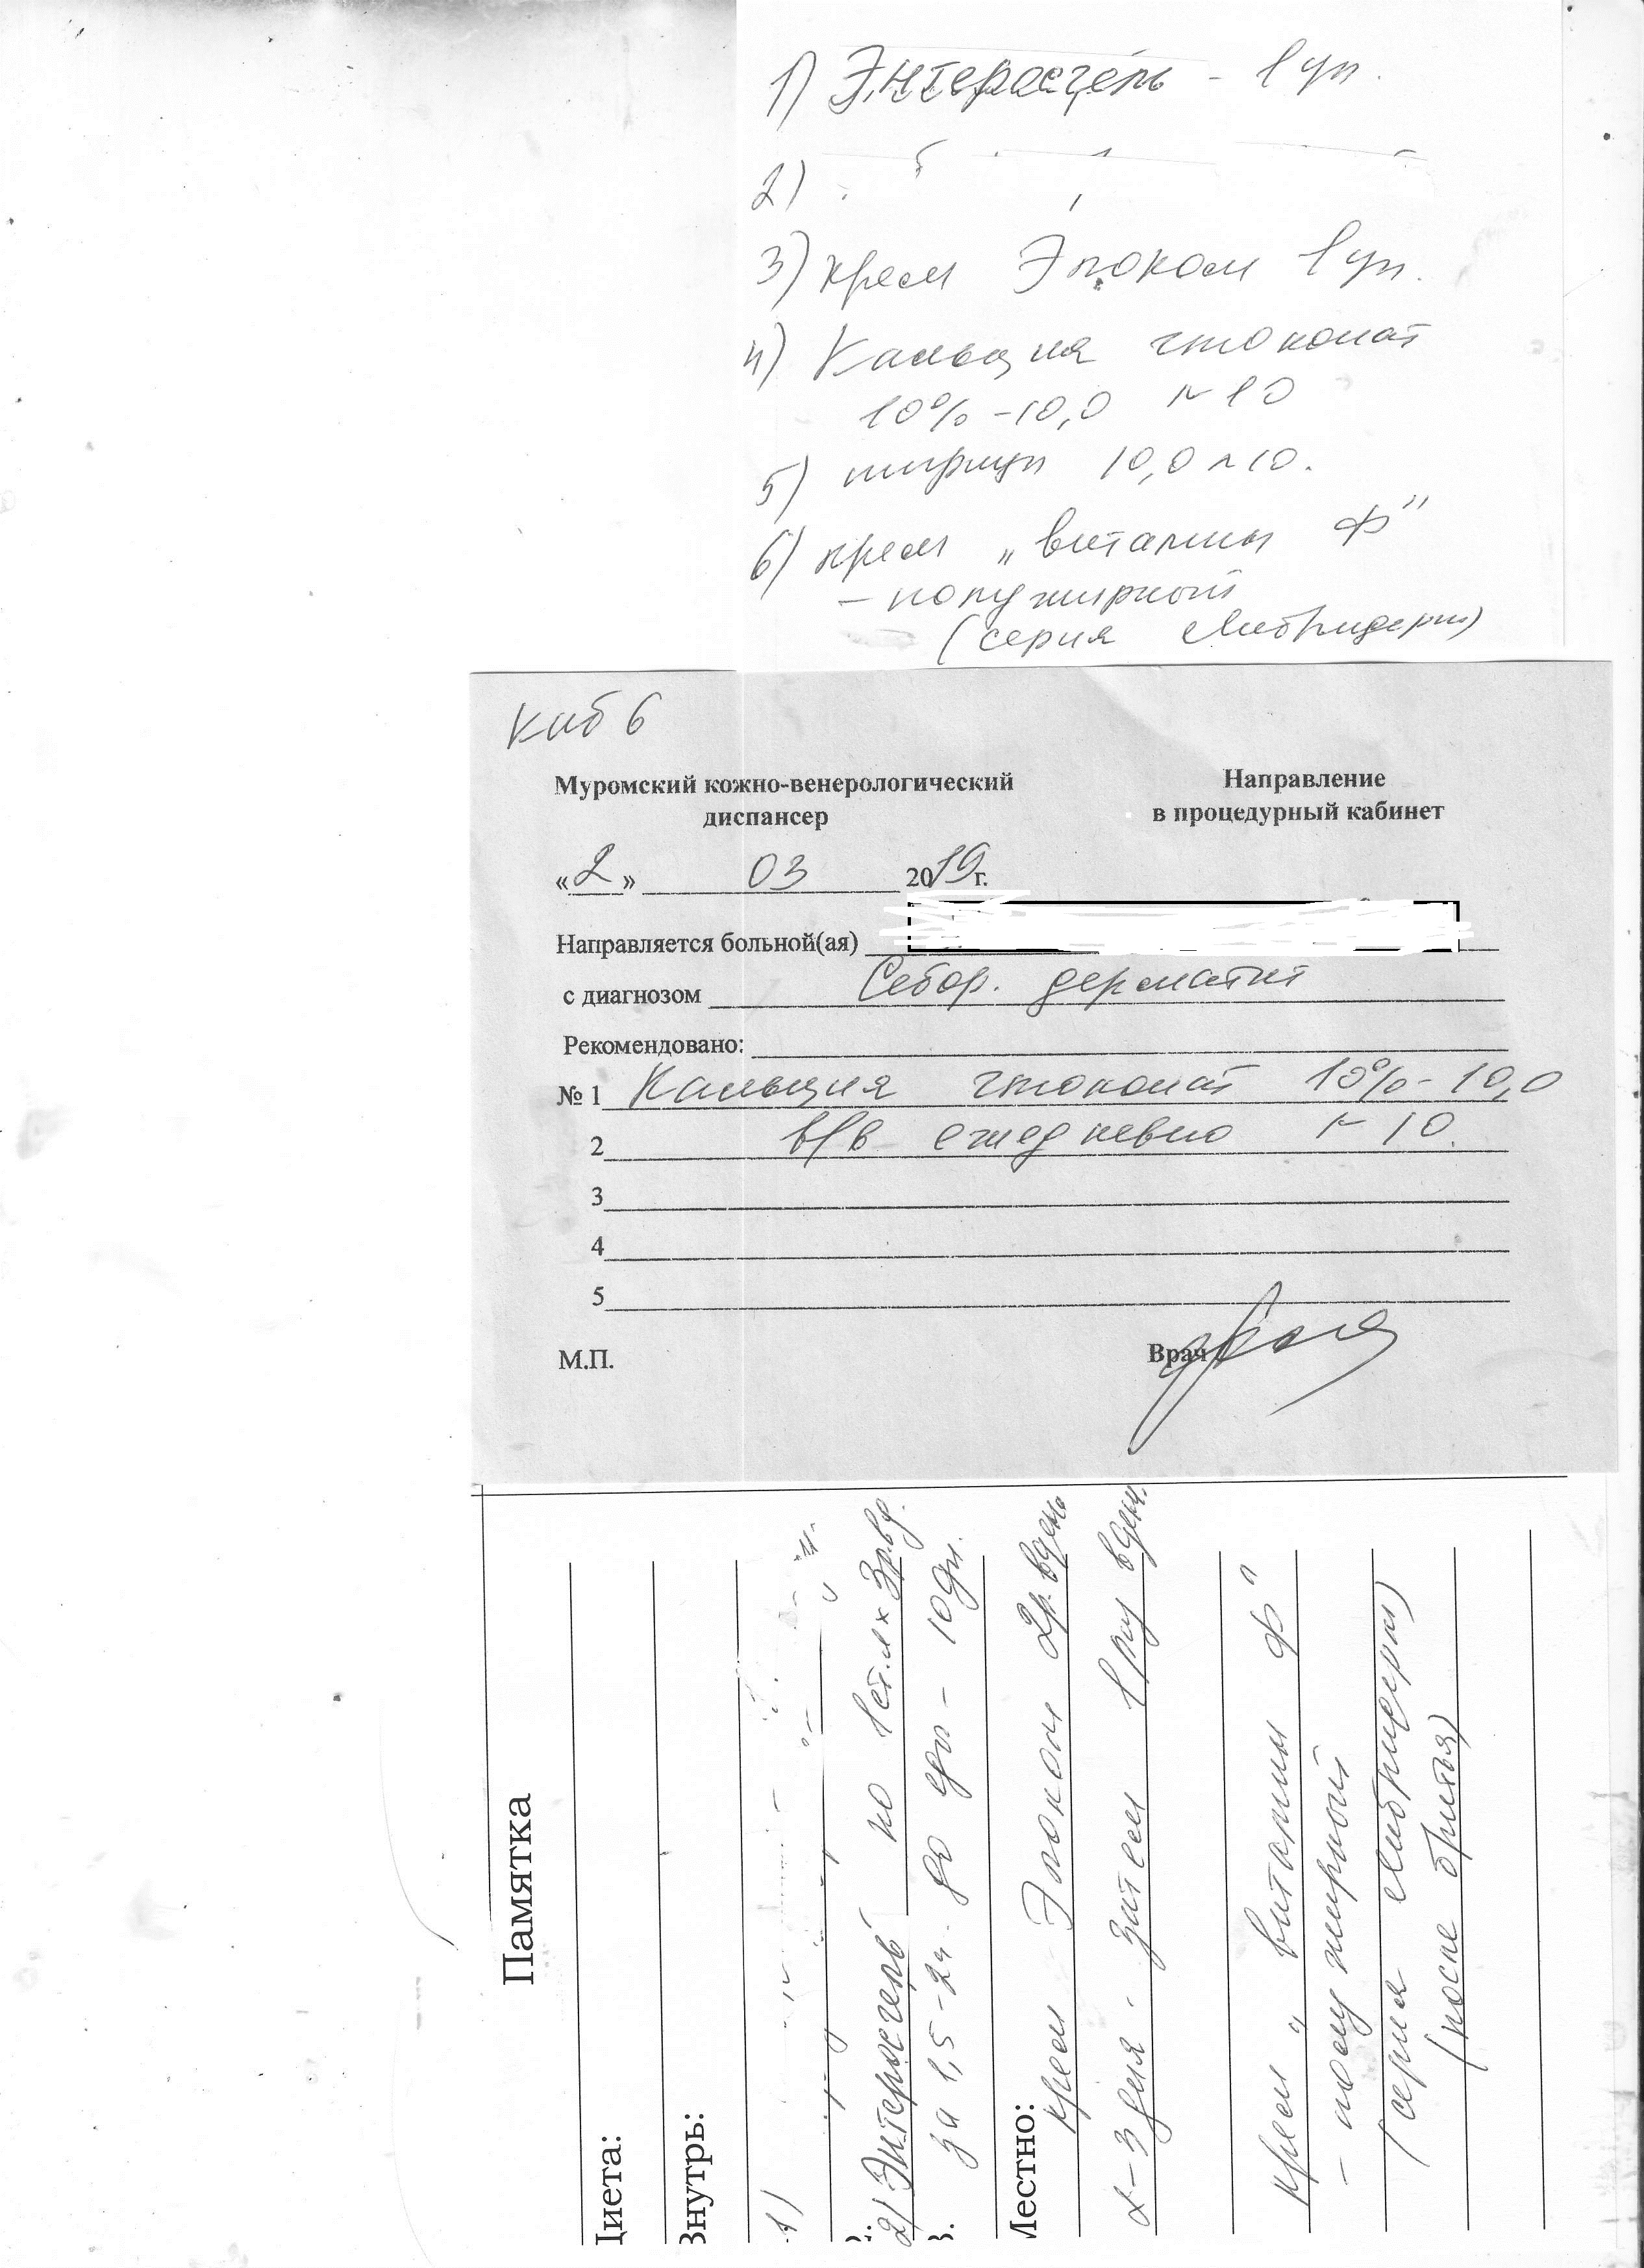 1) Энтеросгель - 1 уп.
2)
3) крем Элоком 1 уп.
4) Кальция глюконат
10% - 10,0 N 10
5) шприцы 10,0 N 10.
6) крем „витамин Ф"
- полужирный
(серия Либридерм)
Каб 6
Муромский кожно-венерологический
диспансер
Направление
в процедурный кабинет
«2» 03 2019г.
Направляется больной(ая)
с диагнозом Себор. дерматит
Рекомендовано:
№ 1 Кальция глюконат 10% - 10,0
2 в/в ежедневно N 10.
3
4
5
М.П.
Врач
Памятка
Диета:
Внутрь:
1)
2) Энтеросгель по 1 ст.л x 3р.вд.
3. за 1,5-2ч. до еды - 10 дн.
Местно:
крем Элоком 2р. вдень
2-3 дня. затем 1 раз вдень.
крем „витамин Ф"
- полужирный
(серия Либридерм)
(после бритья)